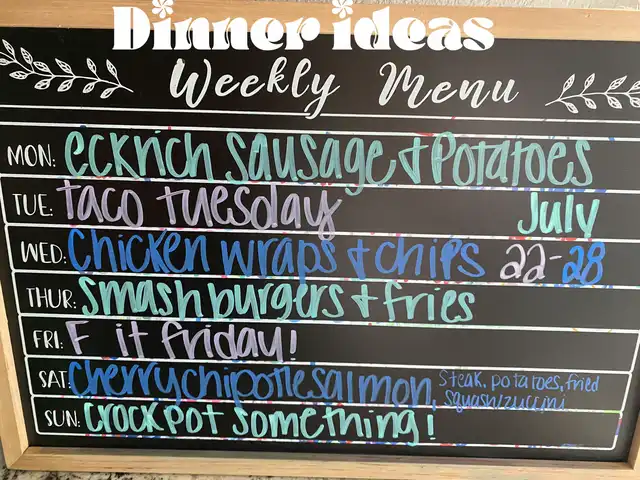 Dinner ideas
Weekly Menu
MON: eckrich sausage + Potatoes
TUE: taco tuesday
July
WED: chicken wraps + chips 22-28
THUR: smash burgers + fries
FRI: F it friday!
SAT: cherrychipotlesalmon, steak, potatoes, fried
squash/zuccini
SUN: crockpot something!